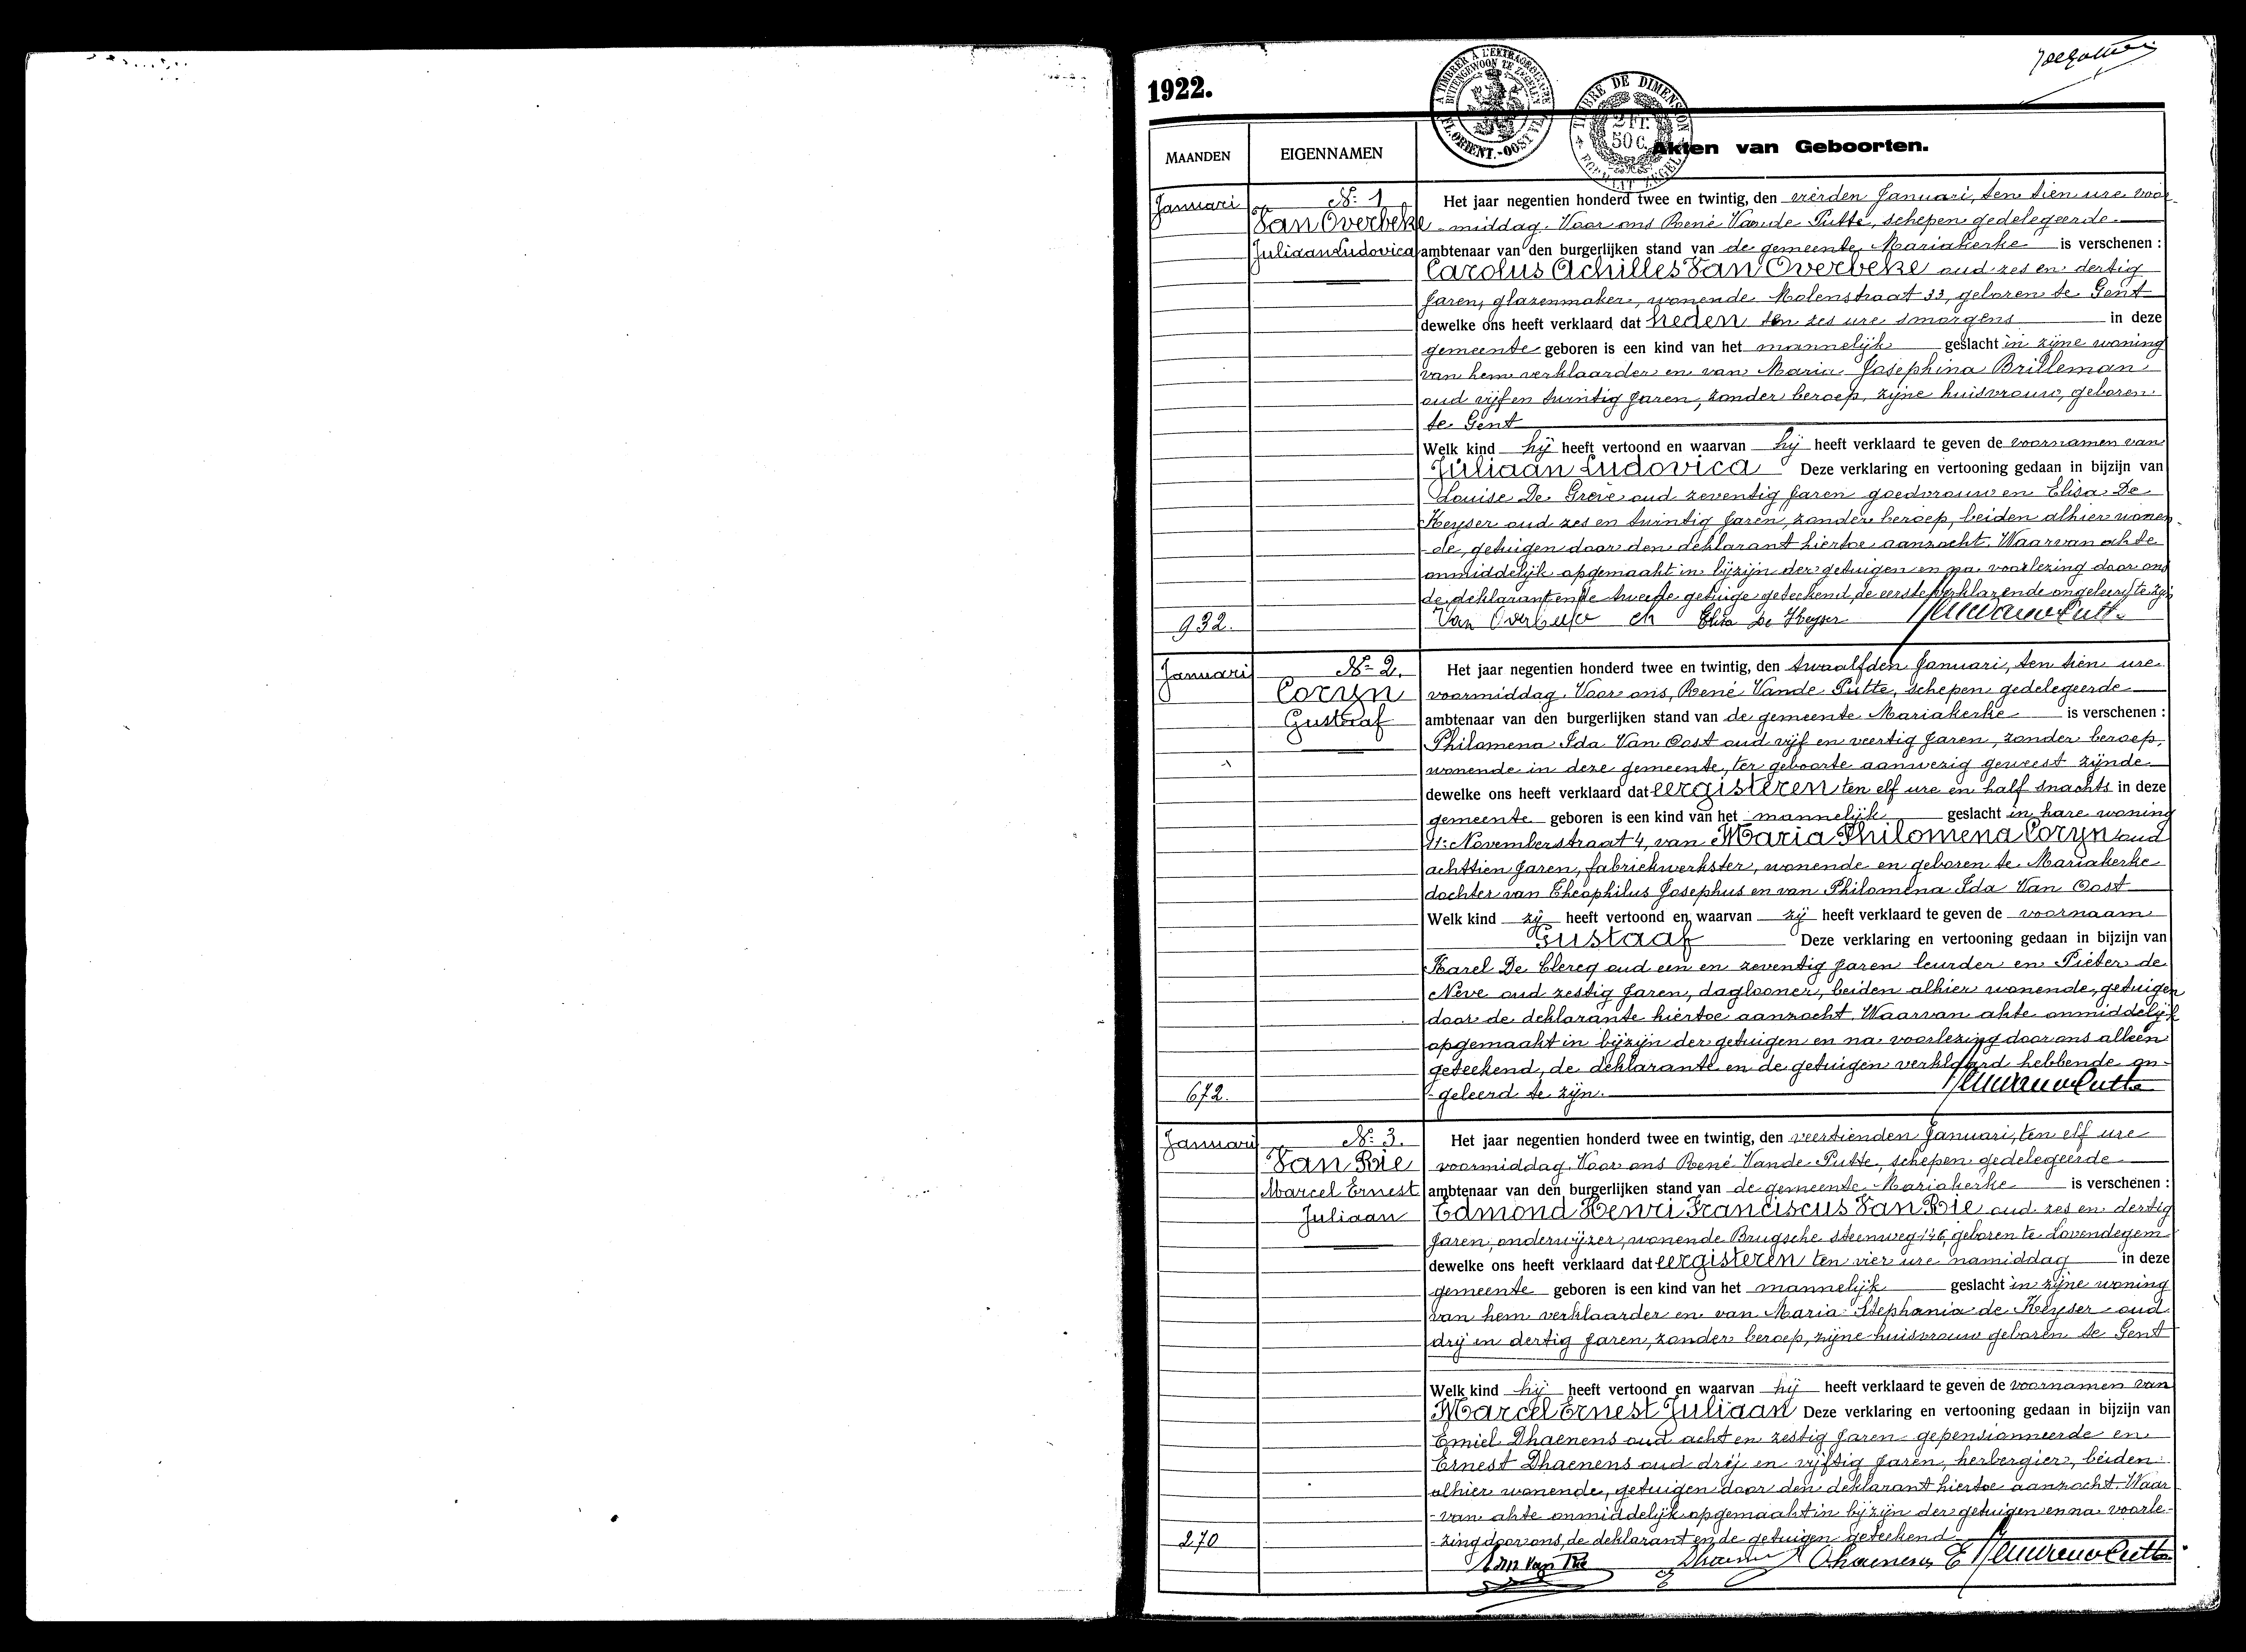 1922.
A TIMBRER A L'EXTRAORDINAIRE
BUITENGEWOON TE ZEGELEN
FL. ORIENT. - OOST VL.
TIMBRE DE DIMENSION
2 FR.
50 C.
FORMAAT ZEGEL
MAANDEN
EIGENNAMEN
Akten van Geboorten.
Januari
Nr 1
Van Overbeke
Juliaan Ludovica
932.
Het jaar negentien honderd twee en twintig, den vierden Januari, ten tien ure voor-
-middag. Voor ons René Van de Putte, schepen gedelegeerde
ambtenaar van den burgerlijken stand van de gemeente Mariakerke is verschenen :
Carolus Achilles Van Overbeke oud zes en dertig
jaren, glazenmaker, wonende Molenstraat 33, geboren te Gent
dewelke ons heeft verklaard dat heden ten zes ure smorgens in deze
gemeente geboren is een kind van het mannelijk geslacht in zijne woning
van hem verklaarder en van Maria Josephina Brilleman
oud vijf en twintig jaren, zonder beroep, zijne huisvrouw, geboren
te Gent
Welk kind hij heeft vertoond en waarvan hij heeft verklaard te geven de voornamen van
Juliaan Ludovica Deze verklaring en vertooning gedaan in bijzijn van
Louise De Greve oud zeventig jaren goedvrouw en Elisa De
Keyser oud zes en twintig jaren, zonder beroep, beiden alhier wonen-
-de, getuigen door den deklarant hiertoe aanzocht. Waarvan akte
onmiddelijk opgemaakt in bijzijn der getuigen en na voorlezing door ons
de deklarant en de tweede getuige geteekend, de eerste verklarende ongeleerd te zijn
Van Overbeke ch Elisa De Keyser
Januari
Nr 2.
Coryn
Gustaaf
672.
Het jaar negentien honderd twee en twintig, den twaalfden Januari, ten tien ure
voormiddag. Voor ons, René Vande Putte, schepen gedelegeerde
ambtenaar van den burgerlijken stand van de gemeente Mariakerke is verschenen :
Philomena Ida Van Oost oud vijf en veertig jaren, zonder beroep,
wonende in deze gemeente, ter geboorte aanwezig geweest zijnde
dewelke ons heeft verklaard dat eergisteren ten elf ure en half snachts in deze
gemeente geboren is een kind van het mannelijk geslacht in hare woning
11e Novemberstraat 4, van Maria Philomena Coryn oud
achttien jaren, fabriekwerkster, wonende en geboren te Mariakerke
dochter van Theophilus Josephus en van Philomena Ida Van Oost
Welk kind zij heeft vertoond en waarvan zij heeft verklaard te geven de voornaam
Gustaaf Deze verklaring en vertooning gedaan in bijzijn van
Karel De Clercq oud een en zeventig jaren leurder en Pieter de
Neve oud zestig jaren, dagloner, beiden alhier wonende, getuigen
door de deklarante hiertoe aanzocht. Waarvan akte onmiddelijk
opgemaakt in bijzijn der getuigen en na voorlezing door ons alleen
geteekend, de deklarante en de getuigen verklaard hebbende on-
-geleerd te zijn.
Januari
Nr 3.
Van Rie
Marcel Ernest
Juliaan
270
Het jaar negentien honderd twee en twintig, den veertienden Januari, ten elf ure
voormiddag. Voor ons René Vande Putte, schepen gedelegeerde
ambtenaar van den burgerlijken stand van de gemeente Mariakerke is verschenen :
Edmond Henri Franciscus Van Rie oud zes en dertig
jaren, onderwijzer, wonende Brugsche steenweg 146, geboren te Lovendegem
dewelke ons heeft verklaard dat eergisteren ten vier ure namiddag in deze
gemeente geboren is een kind van het mannelijk geslacht in zijne woning
van hem verklaarder en van Maria Stephania de Keyser oud
drij en dertig jaren, zonder beroep, zijne huisvrouw geboren te Gent
Welk kind hij heeft vertoond en waarvan hij heeft verklaard te geven de voornamen van
Marcel Ernest Juliaan Deze verklaring en vertooning gedaan in bijzijn van
Emiel Dhaenens oud acht en zestig jaren gepensionneerde en
Ernest Dhaenens oud drij en vijftig jaren, herbergier, beiden
alhier wonende, getuigen door den deklarant hiertoe aanzocht. Waar-
-van akte onmiddelijk opgemaakt in bijzijn der getuigen en na voorle-
-zing door ons, de deklarant en de getuigen geteekend
Edm Van Rie Dhaenens E Dhaenens E